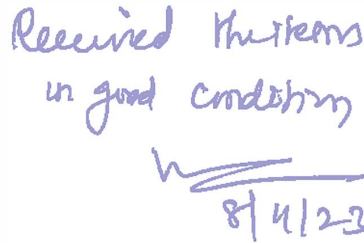 Received the items
in good condition
8/4/23